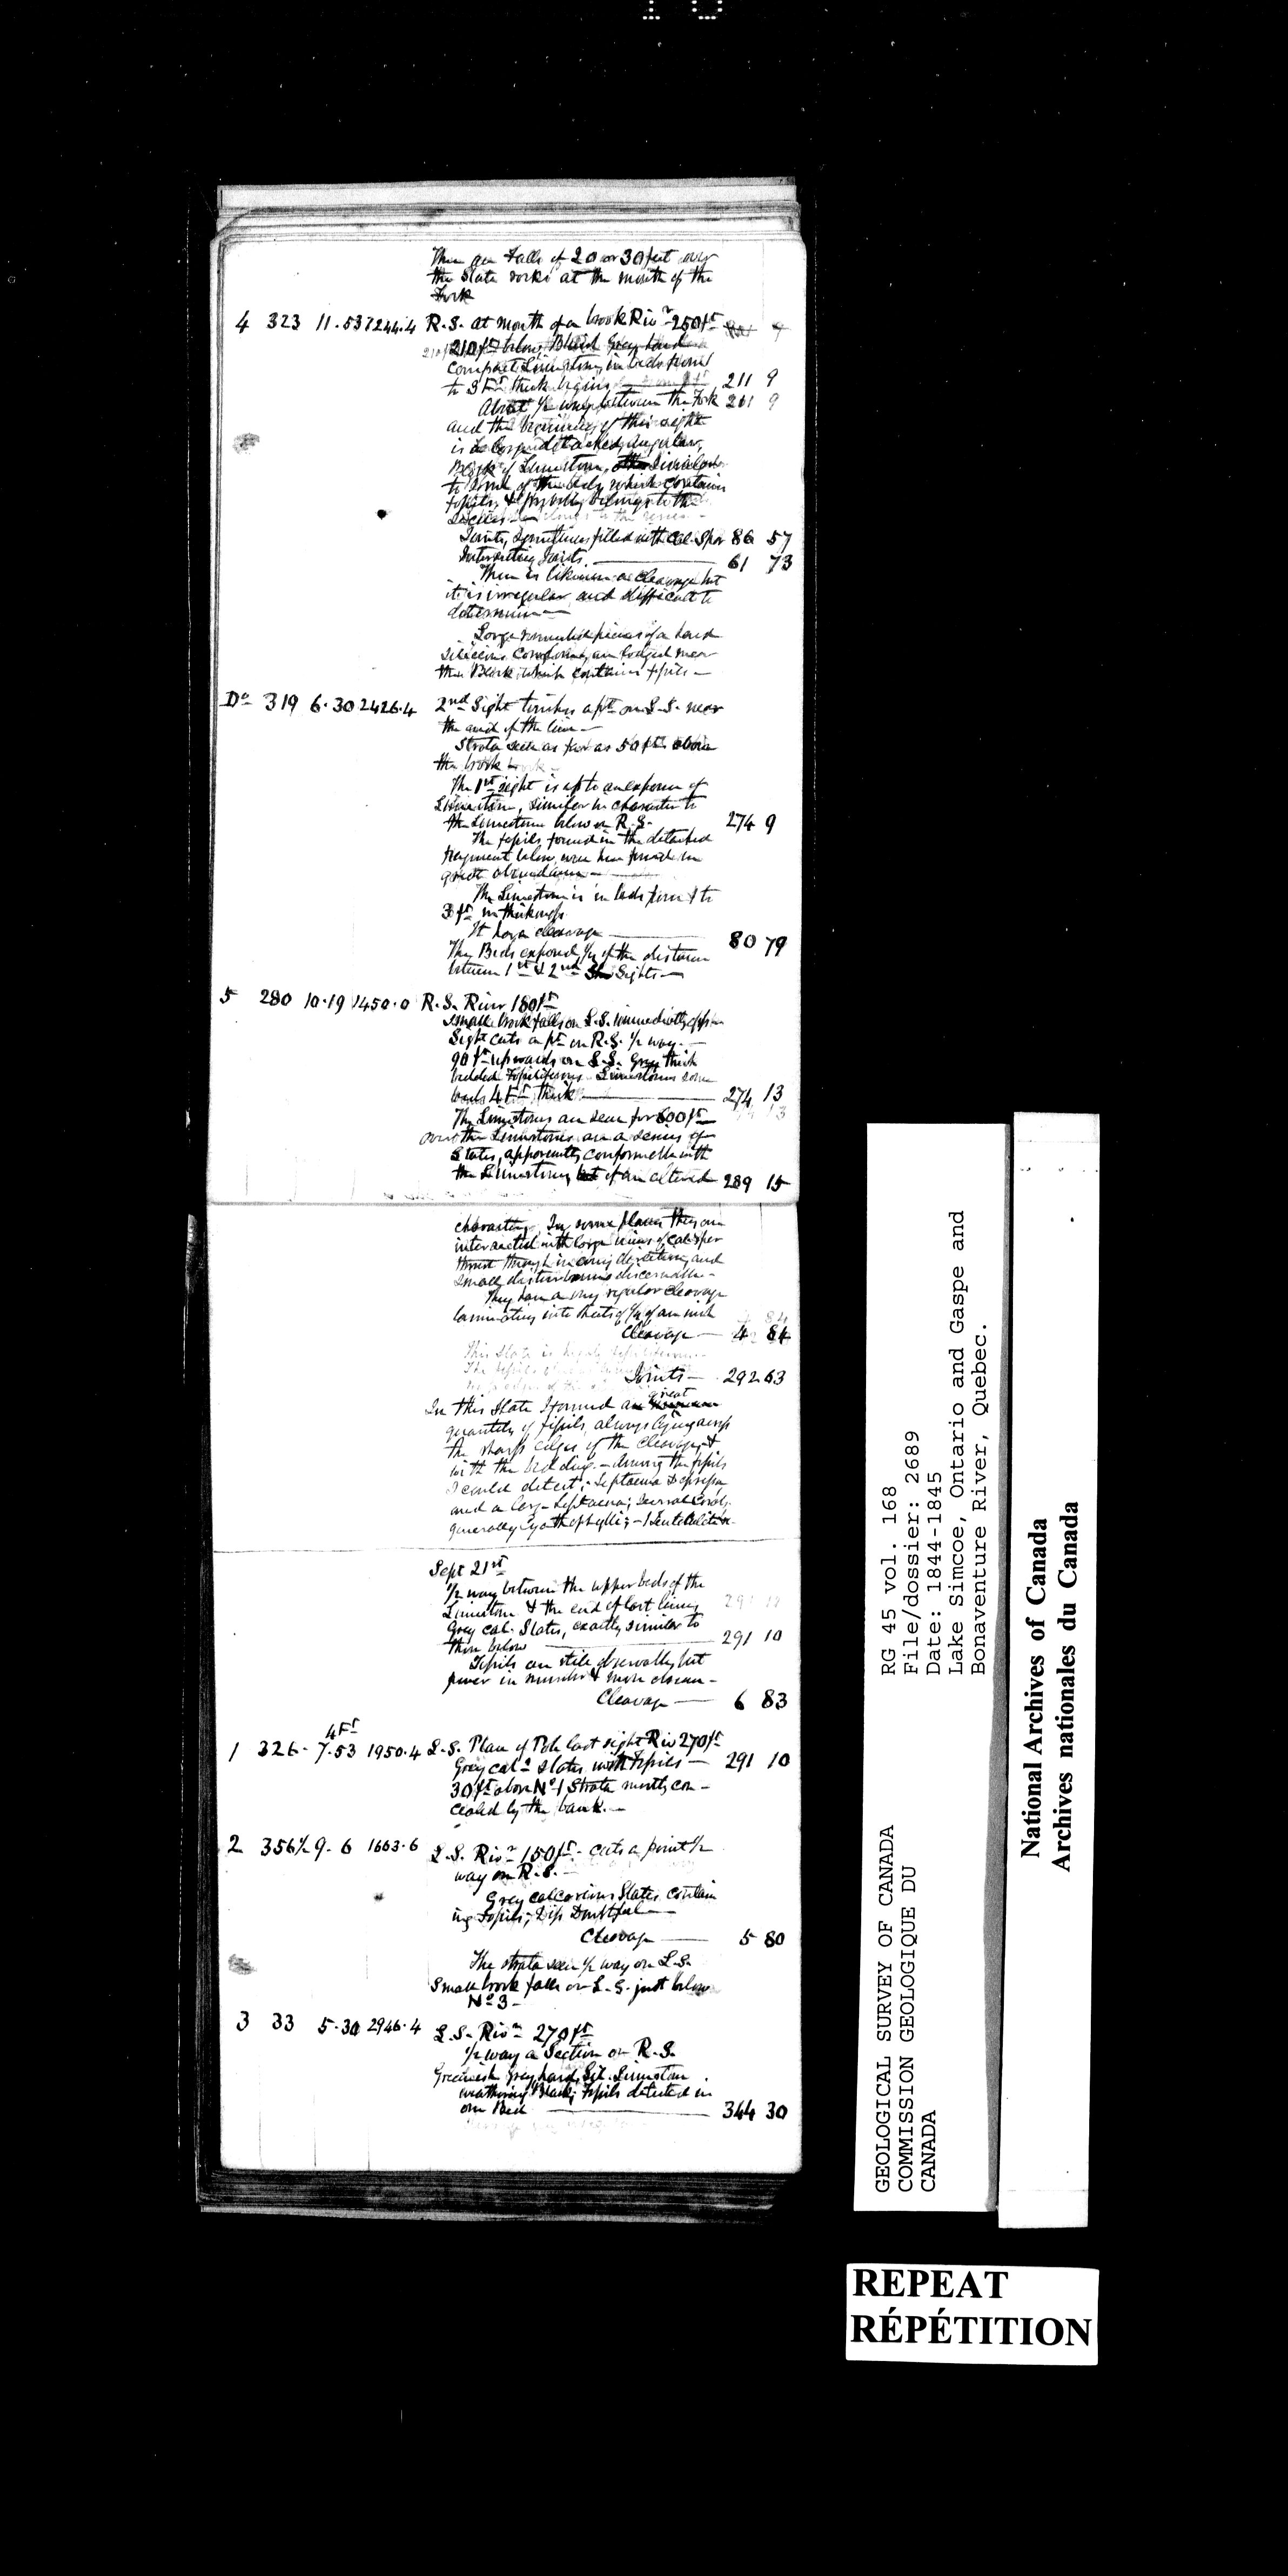 There are Falls of 20 or 30 feet over
the Slate rocks at the mouth of the
Fork
4 323 11.53 7244.4 R.S. at mouth of a brook Rivr 250ft
210ft below, Grey hard
compact Limestone, in beds from 1
to 3 Ft thick begins 211 9
About ½ way between the Fork 211 9
and the beginning of this sight
is a large detached angular
Block of Limestone, similar
to some of the beds, which contains
fossils, & probably belongs to the
Joints, sometimes filled with Cal. Spar 86 57
Intersecting Joints 61 73
There is likewise a cleavage but
it is irregular and difficult to
determine —
Large rounded pieces of a hard
are lodged near
this Block which contains fossils —
Do 319 6.30 2426.4 2nd Sight touches a pt on L.S. near
the end of the line —
Strata seen as far as 50 ft above
the brook
The 1st sight is up to an exposure of
Limestone, similar in character to
the Limestone below on R.S. 274 9
The fossils found in the detached
fragment below, were here found in
great abundance —
The Limestone is in beds from 1 to
3 ft in thickness
It has a cleavage 80 79
The Beds exposed ½ of the distance
between 1st & 2nd Sights —
5 280 10.19 1450.0 R.S. River 180ft
Small brook falls on L.S. immediately opposite
Sight cuts a pt on R.S. ½ way. —
90 ft upwards on L.S. Grey thick
bedded Fossiliferous Limestones some
beds 4 Ft thick 274 13
The Limestones are seen for 600 ft
over the Limestones are a series of
Slates, apparently conformable with
the Limestones, but of an altered 289 15
character. In some places they are
intersected with large veins of calc spar
through in every direction, and
small disturbances discernable —
They have a very regular cleavage
laminating into sheets of ¼ of an inch
Cleavage — 4 84
Joints — 292 63
In this Slate I found a great
quantity of fossils, always lying across
the sharp edges of the cleavage, &
with the bedding. — Among the fossils
I could detect; — Leptaena Depressa
and a large Leptaena; several Corals
generally Cyathophylli; — 1 Tentaculites.
Sept 21st
½ way between the upper beds of the
Limestone & the end of last line,
Grey cal. Slates, exactly similar to
those below 291 10
Fossils are still observable, but
fewer in number & more obscure —
Cleavage — 6 83
4Ft
1 326. 7.53 1950.4 L.S. Place of Pole last sight Riv 270ft
Grey cals Slates with Fossils — 291 10
30 ft above No 1 Strata mostly con-
cealed by the bank. —
2 356½ 9. 6 1663.6 L.S. Rivr 150ft — cuts a point ½
way on R.S. —
Grey calcareous Slates contain
ing Fossils; Dip Doubtful —
Cleavage — 5 80
The strata seen ½ way on L.S.
Small brook falls on L.S. just below
No 3 —
3 33 5.30 2946.4 L.S. Rivr 270ft
½ way a Section on R.S.
Greenish Grey, hard, Sil. Limestone
weathering Black; Fossils detected in
one Bed 344 30
GEOLOGICAL SURVEY OF CANADA
COMMISSION GEOLOGIQUE DU
CANADA
RG 45 vol. 168
File/dossier: 2689
Date: 1844-1845
Lake Simcoe, Ontario and Gaspe and
Bonaventure River, Quebec.
National Archives of Canada
Archives nationales du Canada
REPEAT
RÉPÉTITION